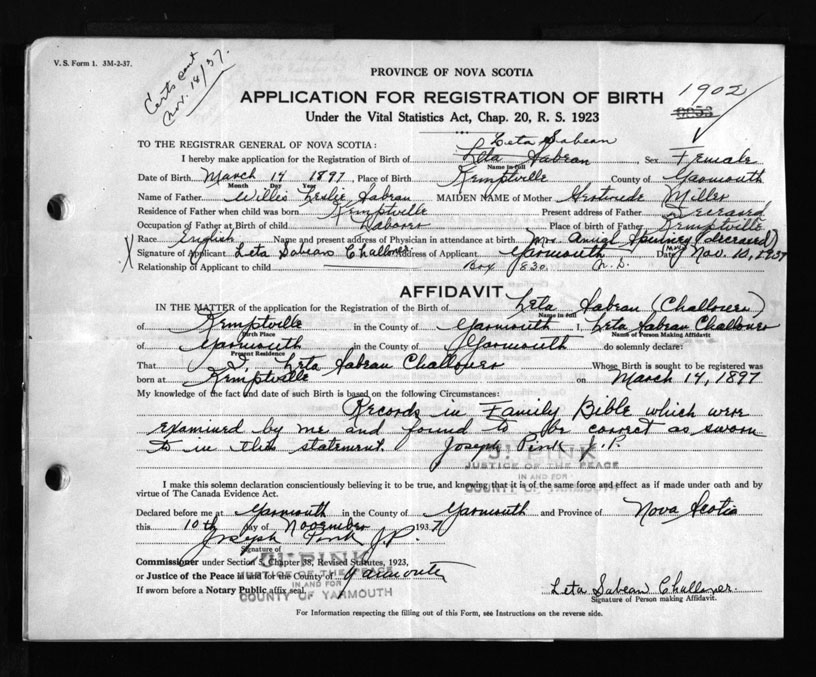 V. S. Form 1. 3M-2-37.
Certs sent
Nov. 18/37.
PROVINCE OF NOVA SCOTIA
1902
APPLICATION FOR REGISTRATION OF BIRTH
Under the Vital Statistics Act, Chap. 20, R. S. 1923
Leta Sabean
TO THE REGISTRAR GENERAL OF NOVA SCOTIA:
I hereby make application for the Registration of Birth of Leta Sabean, Sex Female
Name in full
Date of Birth March 14 1897, Place of Birth Kemptville County of Yarmouth
Month Day Year
Name of Father Willis Leslie Sabean MAIDEN NAME of Mother Gertrude Miller
Residence of Father when child was born Kemptville Present address of Father Deceased
Occupation of Father at Birth of child Laborer Place of birth of Father Kemptville
Race English Name and present address of Physician in attendance at birth Mrs. Spinney (deceased)
X Signature of Applicant Leta Sabean Challoner Address of Applicant Yarmouth Date Nov. 10, 1937
Relationship of Applicant to child Box 830 N. S.
AFFIDAVIT
IN THE MATTER of the application for the Registration of the Birth of Leta Sabean (Challoner)
Name in full
of Kemptville in the County of Yarmouth I, Leta Sabean Challoner
Birth Place Name of Person Making Affidavit
of Yarmouth in the County of Yarmouth do solemnly declare:
Present Residence
That I, Leta Sabean Challoner Whose Birth is sought to be registered was
born at Kemptville on March 14, 1897
My knowledge of the fact and date of such Birth is based on the following Circumstances:
Records in Family Bible which were
examined by me and found to be correct as sworn
to in this statement. Joseph Pink J. P.
J. PINK
JUSTICE OF THE PEACE
IN AND FOR
COUNTY OF YARMOUTH
I make this solemn declaration conscientiously believing it to be true, and knowing that it is of the same force and effect as if made under oath and by
virtue of The Canada Evidence Act.
Declared before me at Yarmouth in the County of Yarmouth and Province of Nova Scotia
this 10th day of November 1937
Joseph Pink J.P.
Signature of
Commissioner under Section 5, Chapter 38, Revised Statutes, 1923,
J. PINK
or Justice of the Peace in and for the County of Yarmouth
JUSTICE OF THE PEACE
IN AND FOR
If sworn before a Notary Public affix seal.
COUNTY OF YARMOUTH
Leta Sabean Challoner.
Signature of Person making Affidavit.
For Information respecting the filling out of this Form, see Instructions on the reverse side.